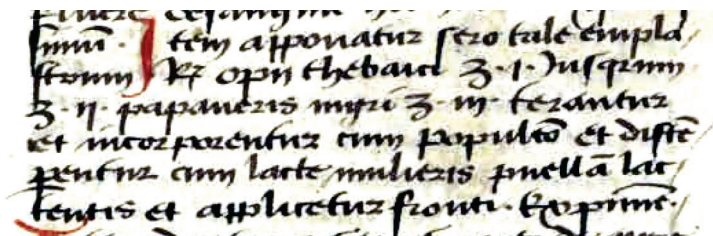 simum. Item apponatur sero tale empla
strum ℞ opii thebaici ʒ.i. Jusqrimi
ʒ.ii. papaueris nigri ʒ.iii. terantur
et incorporentur cum populeo et diste
perentur cum lacte mulieris puellā lac
tentis et applicetur fronti.